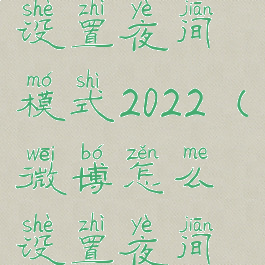 shè zhì yè jiān
设置夜间
mó shì
模式2022（
wēi bó zěn me
微博怎么
shè zhì yè jiān
设置夜间